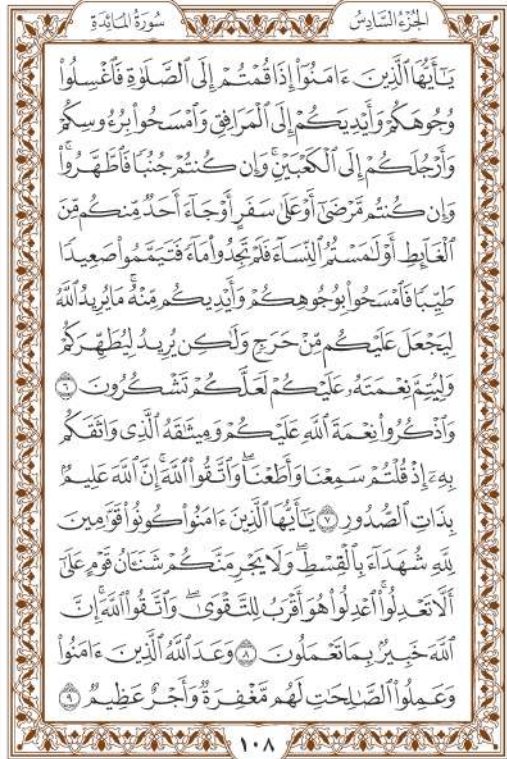 سُورَةُ المَائدَةِ
الجُزءُ السَّادِسُ
يَـٰٓأَيُّهَا ٱلَّذِينَ ءَامَنُوٓا۟ إِذَا قُمْتُمْ إِلَى ٱلصَّلَوٰةِ فَٱغْسِلُوا۟
وُجُوهَكُمْ وَأَيْدِيَكُمْ إِلَى ٱلْمَرَافِقِ وَٱمْسَحُوا۟ بِرُءُوسِكُمْ
وَأَرْجُلَكُمْ إِلَى ٱلْكَعْبَيْنِ ۚ وَإِن كُنتُمْ جُنُبًا فَٱطَّهَّرُوا۟ ۚ
وَإِن كُنتُم مَّرْضَىٰٓ أَوْ عَلَىٰ سَفَرٍ أَوْ جَآءَ أَحَدٌ مِّنكُم مِّنَ
ٱلْغَآئِطِ أَوْ لَـٰمَسْتُمُ ٱلنِّسَآءَ فَلَمْ تَجِدُوا۟ مَآءً فَتَيَمَّمُوا۟ صَعِيدًا
طَيِّبًا فَٱمْسَحُوا۟ بِوُجُوهِكُمْ وَأَيْدِيكُم مِّنْهُ ۚ مَا يُرِيدُ ٱللَّهُ
لِيَجْعَلَ عَلَيْكُم مِّنْ حَرَجٍ وَلَـٰكِن يُرِيدُ لِيُطَهِّرَكُمْ
وَلِيُتِمَّ نِعْمَتَهُۥ عَلَيْكُمْ لَعَلَّكُمْ تَشْكُرُونَ ٦
وَٱذْكُرُوا۟ نِعْمَةَ ٱللَّهِ عَلَيْكُمْ وَمِيثَـٰقَهُ ٱلَّذِى وَاثَقَكُم
بِهِۦٓ إِذْ قُلْتُمْ سَمِعْنَا وَأَطَعْنَا ۖ وَٱتَّقُوا۟ ٱللَّهَ ۚ إِنَّ ٱللَّهَ عَلِيمٌۢ
بِذَاتِ ٱلصُّدُورِ ٧ يَـٰٓأَيُّهَا ٱلَّذِينَ ءَامَنُوا۟ كُونُوا۟ قَوَّٰمِينَ
لِلَّهِ شُهَدَآءَ بِٱلْقِسْطِ ۖ وَلَا يَجْرِمَنَّكُمْ شَنَـَٔانُ قَوْمٍ عَلَىٰٓ
أَلَّا تَعْدِلُوا۟ ۚ ٱعْدِلُوا۟ هُوَ أَقْرَبُ لِلتَّقْوَىٰ ۖ وَٱتَّقُوا۟ ٱللَّهَ ۚ إِنَّ
ٱللَّهَ خَبِيرٌۢ بِمَا تَعْمَلُونَ ٨ وَعَدَ ٱللَّهُ ٱلَّذِينَ ءَامَنُوا۟
وَعَمِلُوا۟ ٱلصَّـٰلِحَـٰتِ ۙ لَهُم مَّغْفِرَةٌ وَأَجْرٌ عَظِيمٌ ٩
١٠٨